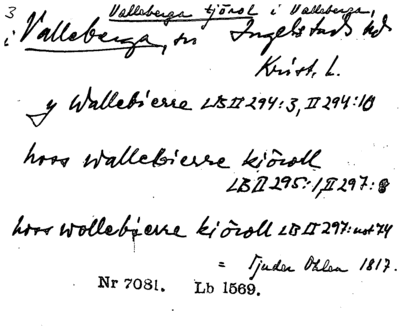 3
Valleberga tjörot i Valleberga,
i Valleberga, sn Ingelstads hd
Krist. L.
y Wallebierre LB II 294:3, II 294:10
hoss wallebierre kiöroll
LB II 295:1, II 297:8
hoss wollebierre kiöroll LB II 297: not 74
= Tjuder Ohlen 1817.
Nr 7081. Lb 1569.